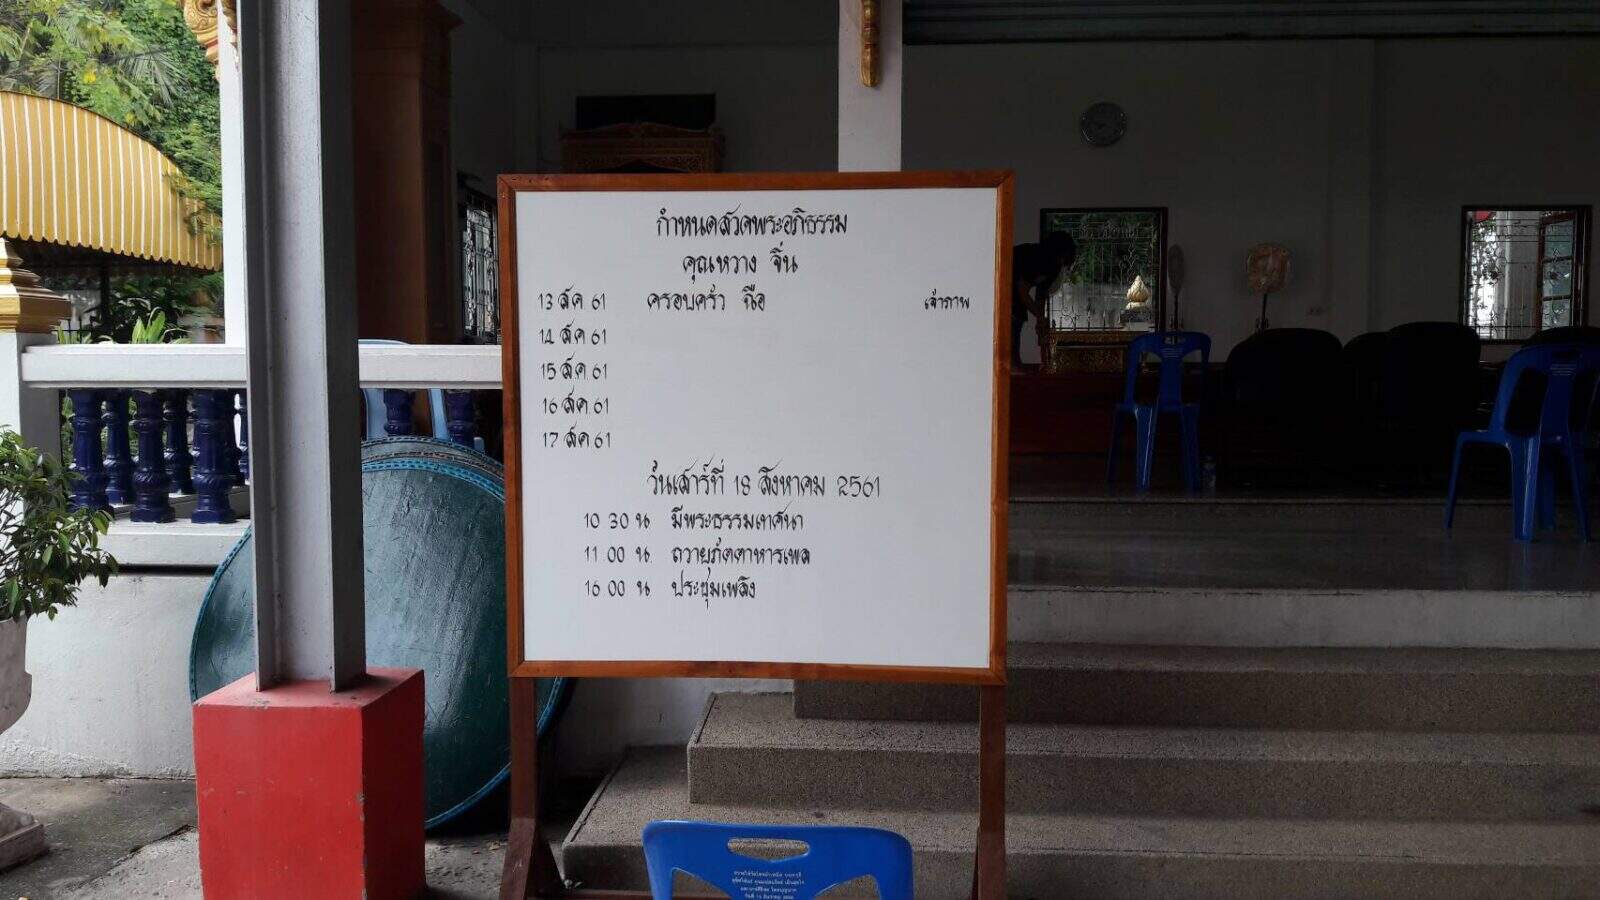 กำหนดสวดพระอภิธรรม
คุณหวาง จิ่น
13 สค 61 ครอบครัว ฉือ เจ้าภาพ
14 สค 61
15 สค 61
16 สค 61
17 สค 61
วันเสาร์ที่ 18 สิงหาคม 2561
10 30 น มีพระธรรมเทศนา
11 00 น ถวายภัตตาหารเพล
16 00 น ประชุมเพลิง